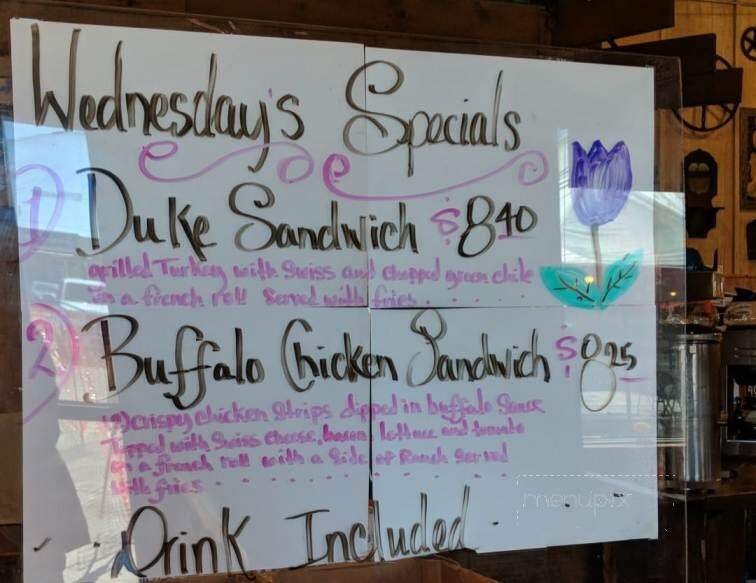 Wednesday's Specials
1) Duke Sandwich $8.40
grilled Turkey with Swiss and chopped green chile
in a french roll served with fries . . . . . .
2) Buffalo Chicken Sandwich $8.25
crispy chicken strips dipped in buffalo sauce
topped with Swiss cheese, bacon lettuce and tomato
on a french roll with a side of Ranch served
with fries . . . . . . . . . . . . . .
Drink Included
menupix